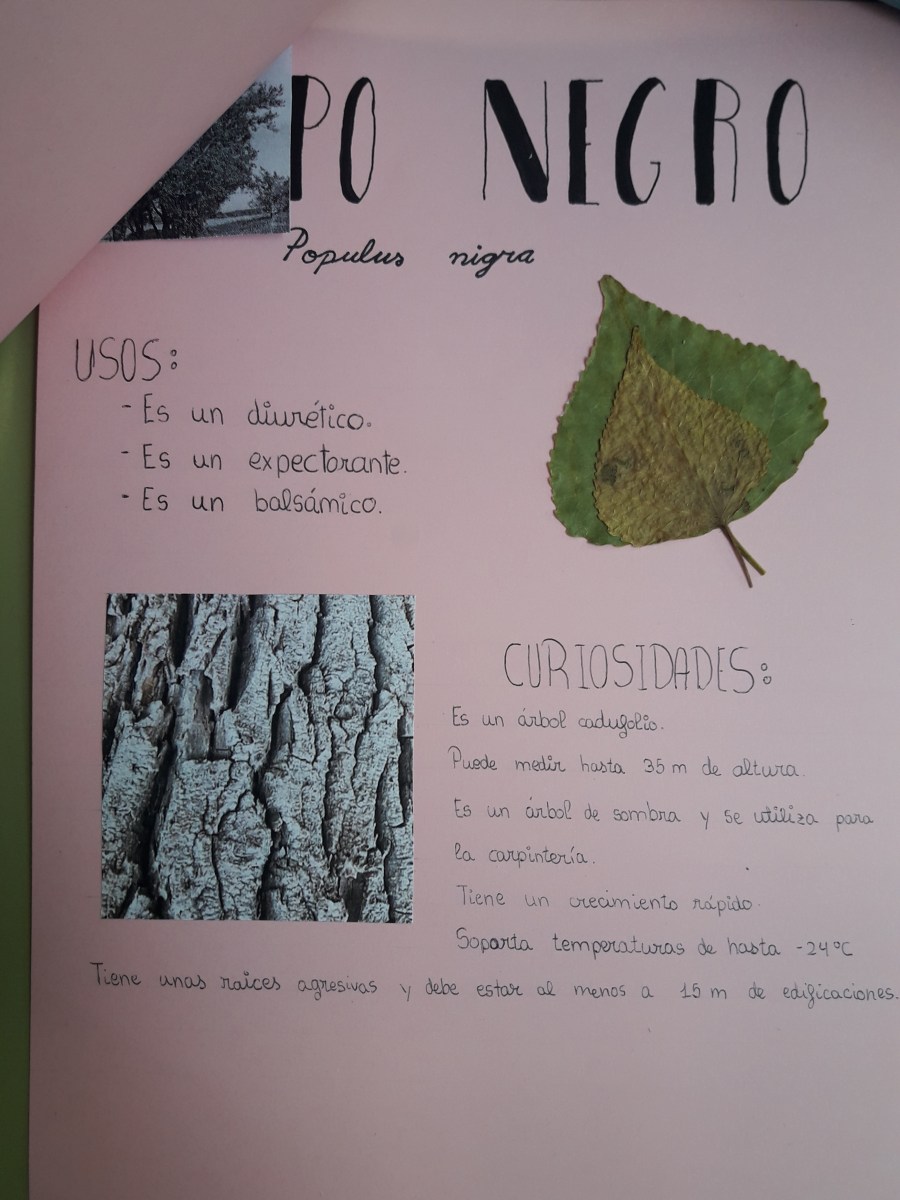 PO NEGRO
Populus nigra
USOS:
- Es un diurético.
- Es un expectorante.
- Es un balsámico.
CURIOSIDADES:
Es un árbol caducifolio.
Puede medir hasta 35 m de altura.
Es un árbol de sombra y se utiliza para
la carpintería.
Tiene un crecimiento rápido.
Soporta temperaturas de hasta -24°C
Tiene unas raices agresivas y debe estar al menos a 15 m de edificaciones.